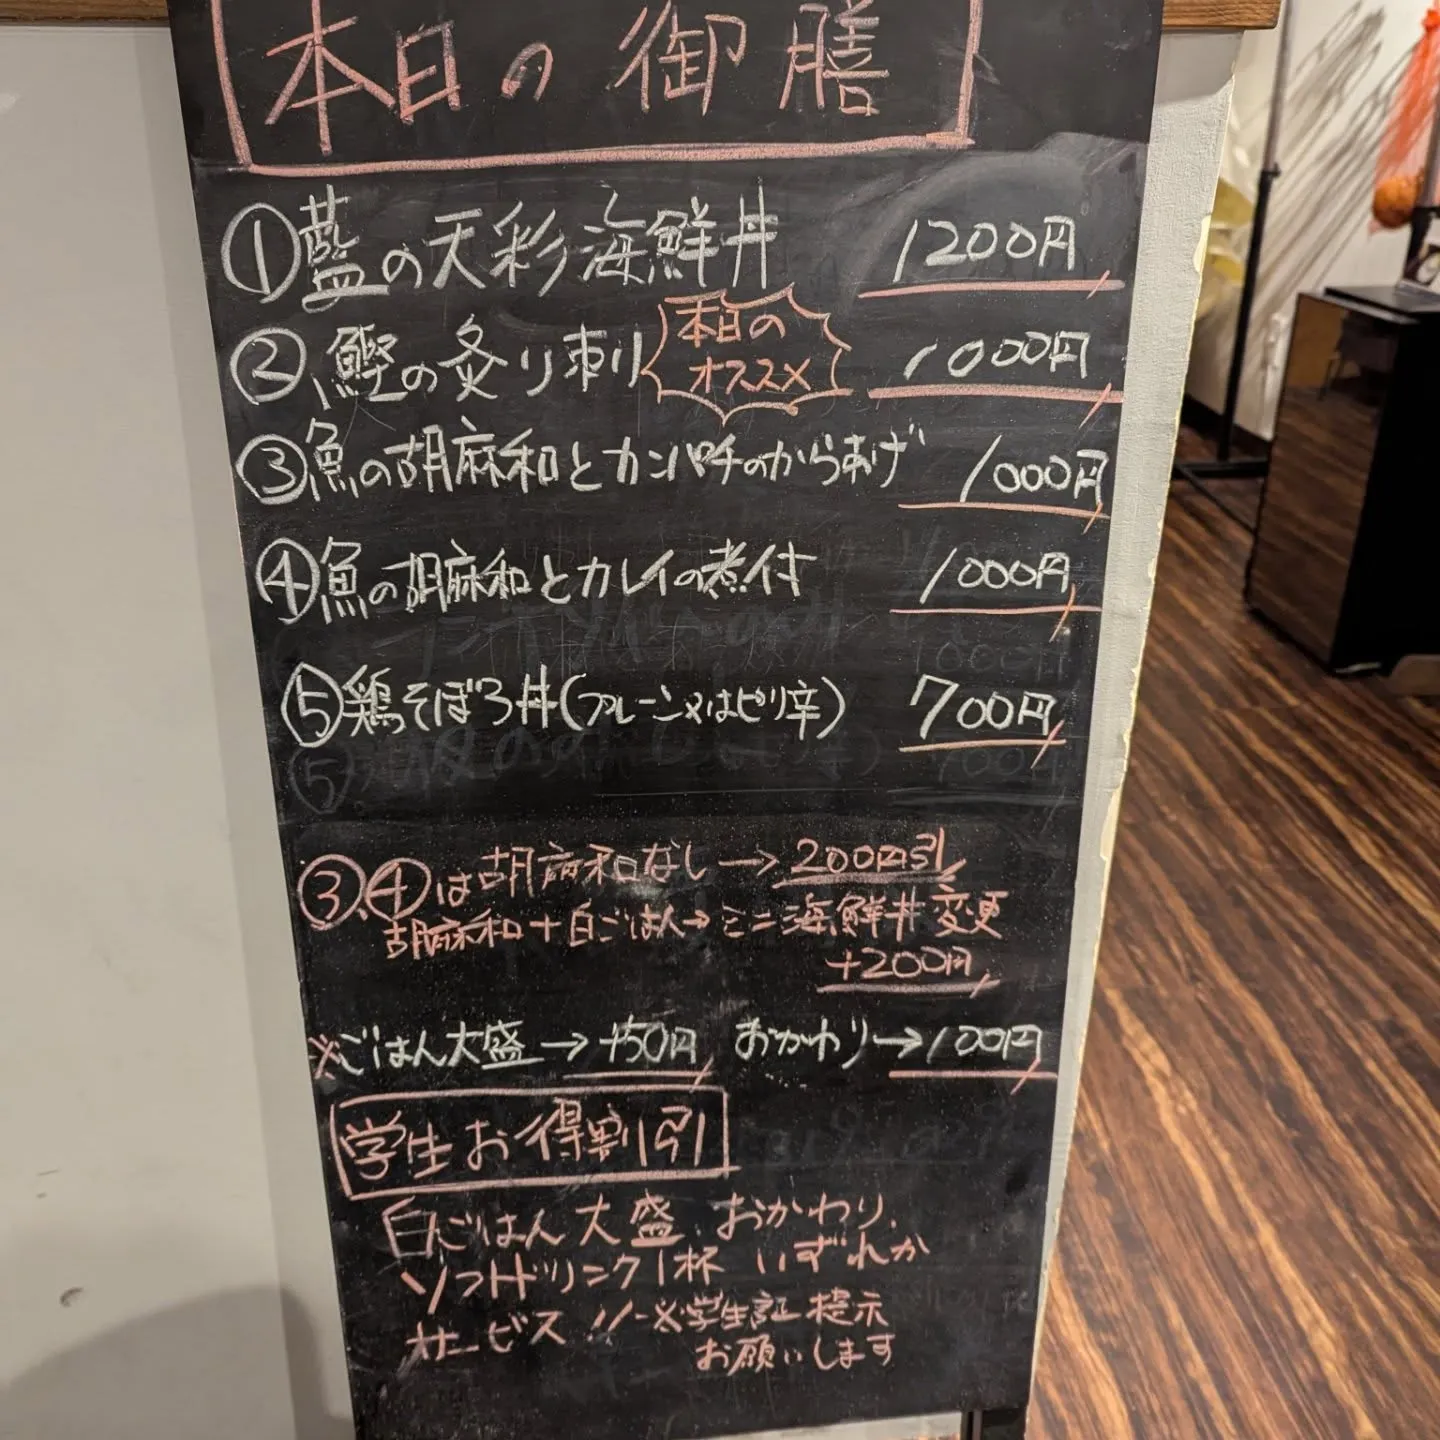 本日の御膳
①藍の天彩海鮮丼 1200円
②鰹の炙り刺 本日のオススメ 1000円
③魚の胡麻和とカンパチのからあげ 1000円
④魚の胡麻和とカレイの煮付 1000円
⑤鶏そぼろ丼(プレーン又はピリ辛) 700円
③、④は胡麻和なし→200円引
胡麻和+白ごはん→ミニ海鮮丼変更
+200円
※ごはん大盛→+50円 おかわり→100円
学生お得割引
白ごはん大盛、おかわり、
ソフトドリンク1杯 いずれか
サービス!!※学生証提示
お願いします